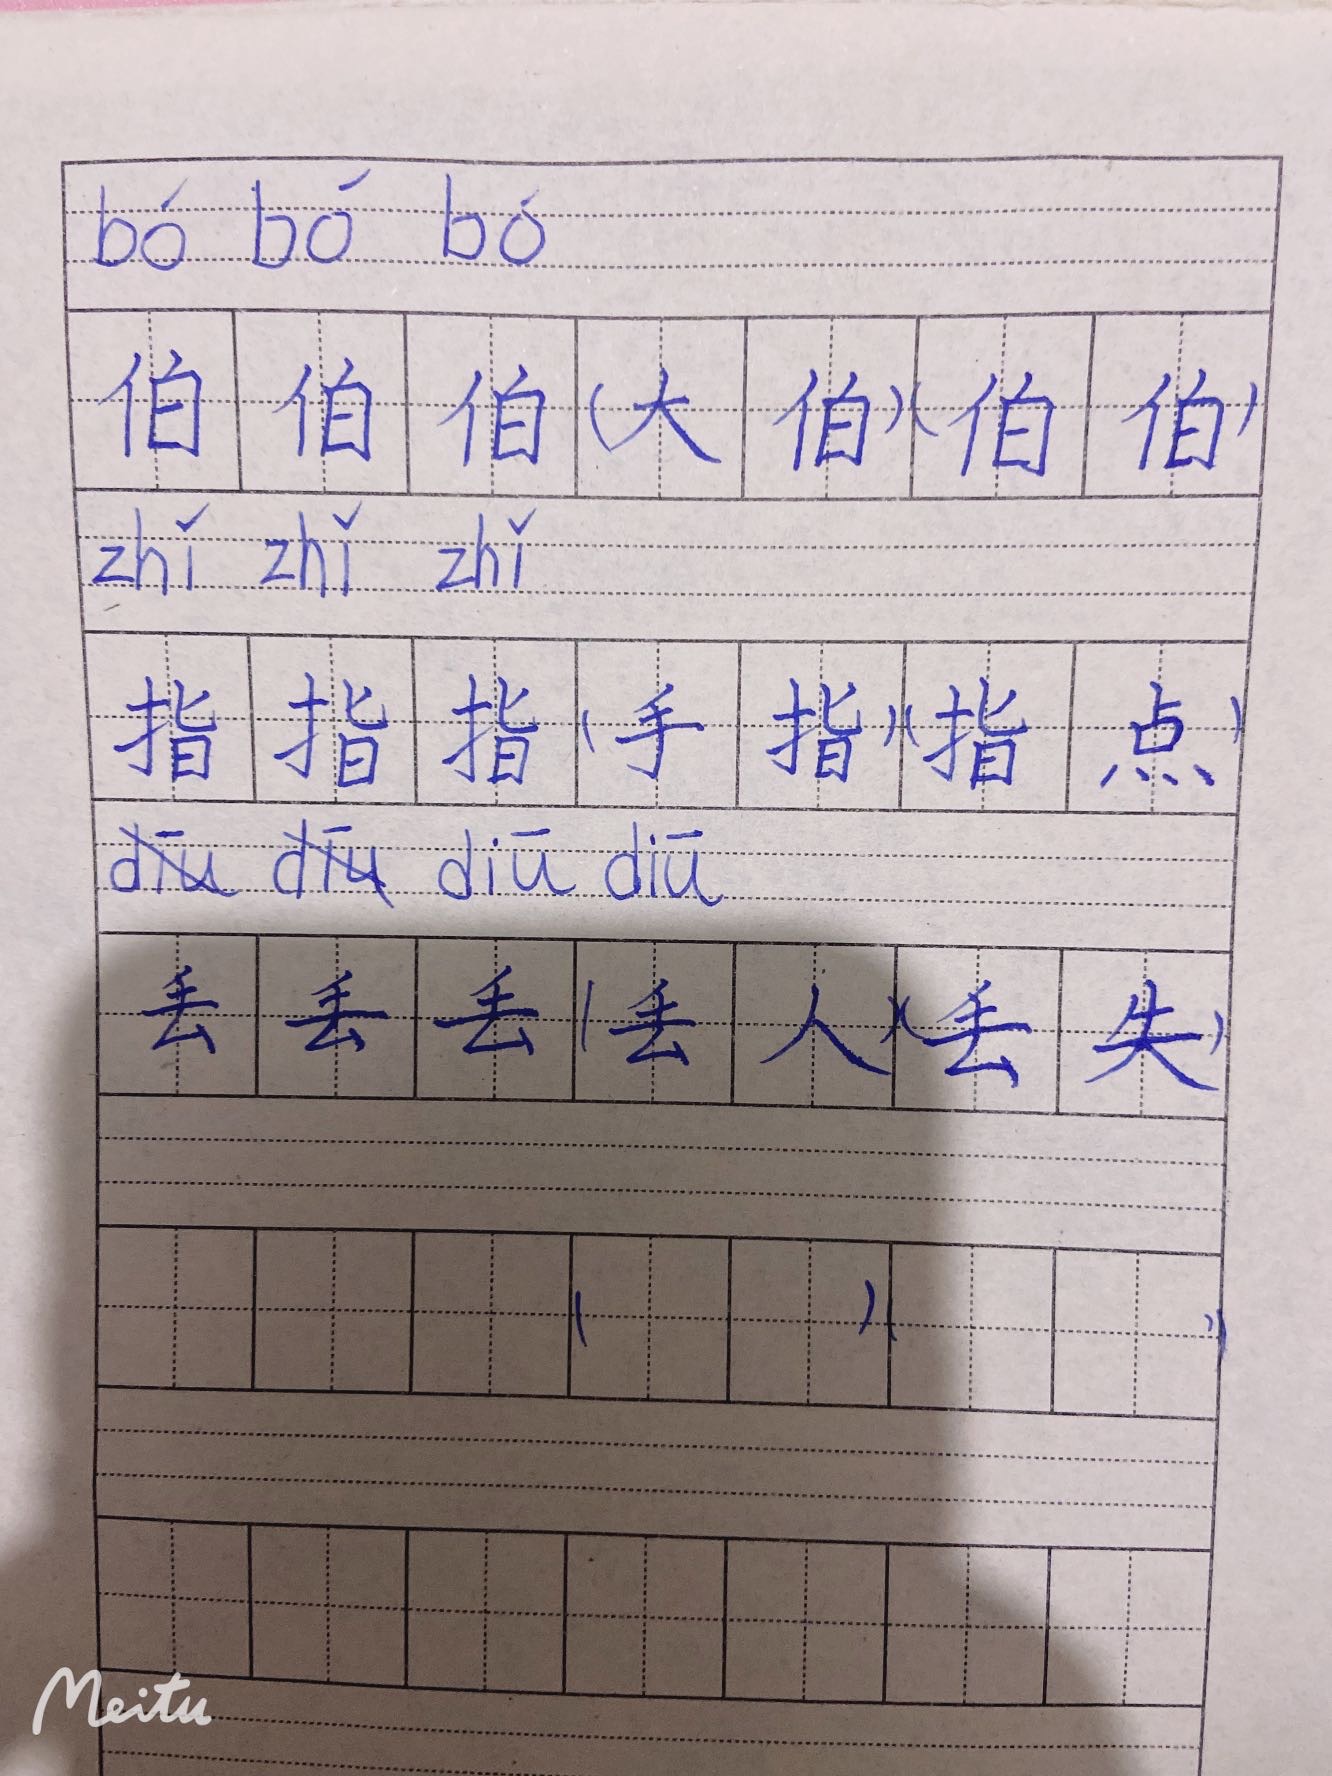 bó bó bó
伯 伯 伯 (大 伯)(伯 伯)
zhǐ zhǐ zhǐ
指 指 指 (手 指)(指 点)
dīu dīu diū diū
丢 丢 丢 (丢 人)(丢 失)
( )( )
Meitu